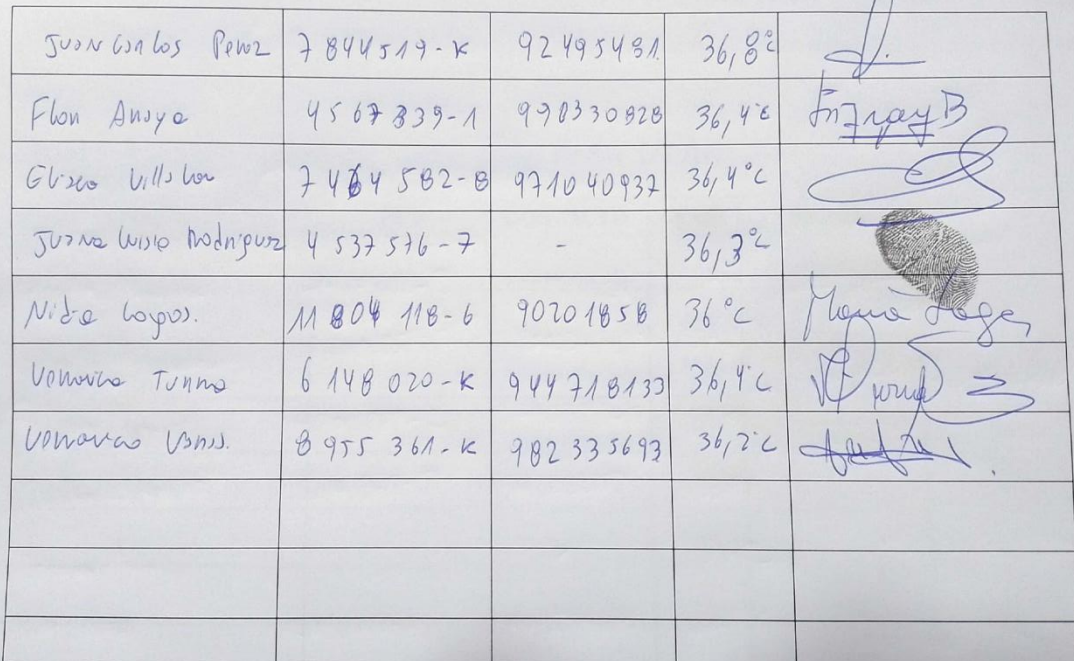 Juan Carlos Perez 7844519-K 92495481. 36,8°c
Flon Anoya 4567839-1 990330828 36,4°c
Eliseo 7464582-8 971040937 36,4°c
Juana Luisa Rodriguez 4537576-7 - 36,3°c
Nidia Lagos. 11804118-6 90201858 36°c María Lagos
6148020-K 944718133 36,4°c
8955361-K 982335693 36,2°c